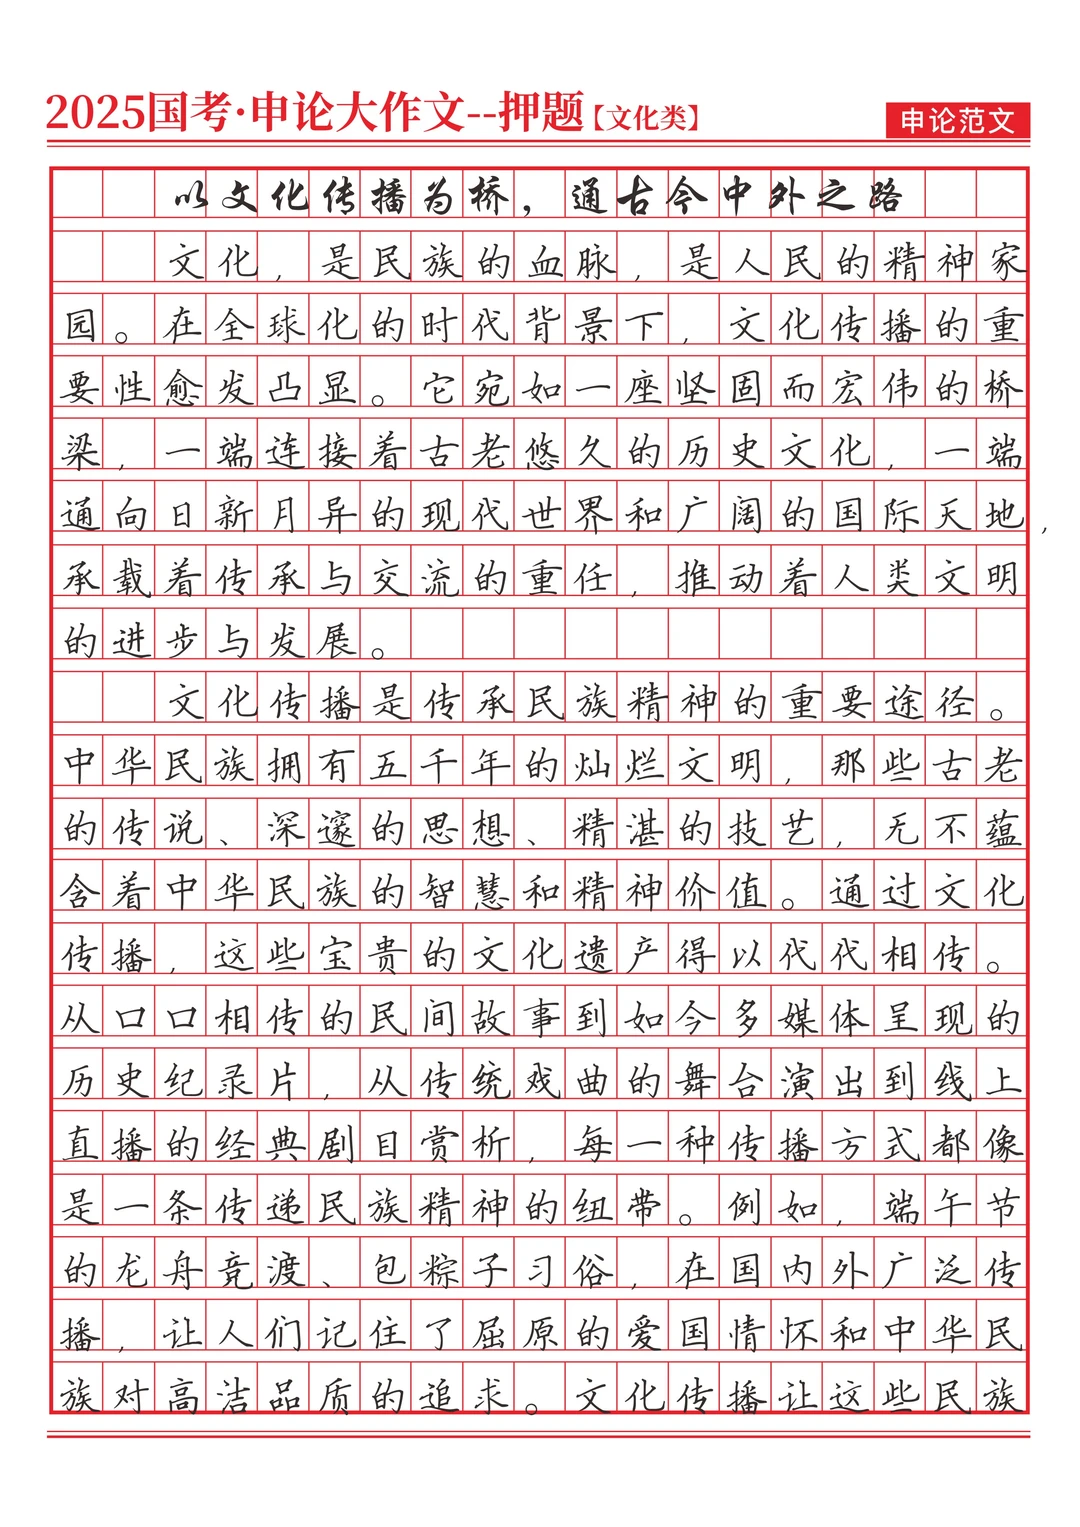 2025国考·申论大作文--押题【文化类】
申论范文
以文化传播为桥，通古今中外之路
文化，是民族的血脉，是人民的精神家
园。在全球化的时代背景下，文化传播的重
要性愈发凸显。它宛如一座坚固而宏伟的桥
梁，一端连接着古老悠久的历史文化，一端
通向日新月异的现代世界和广阔的国际天地，
承载着传承与交流的重任，推动着人类文明
的进步与发展。
文化传播是传承民族精神的重要途径。
中华民族拥有五千年的灿烂文明，那些古老
的传说、深邃的思想、精湛的技艺，无不蕴
含着中华民族的智慧和精神价值。通过文化
传播，这些宝贵的文化遗产得以代代相传。
从口口相传的民间故事到如今多媒体呈现的
历史纪录片，从传统戏曲的舞台演出到线上
直播的经典剧目赏析，每一种传播方式都像
是一条传递民族精神的纽带。例如，端午节
的龙舟竞渡、包粽子习俗，在国内外广泛传
播，让人们记住了屈原的爱国情怀和中华民
族对高洁品质的追求。文化传播让这些民族